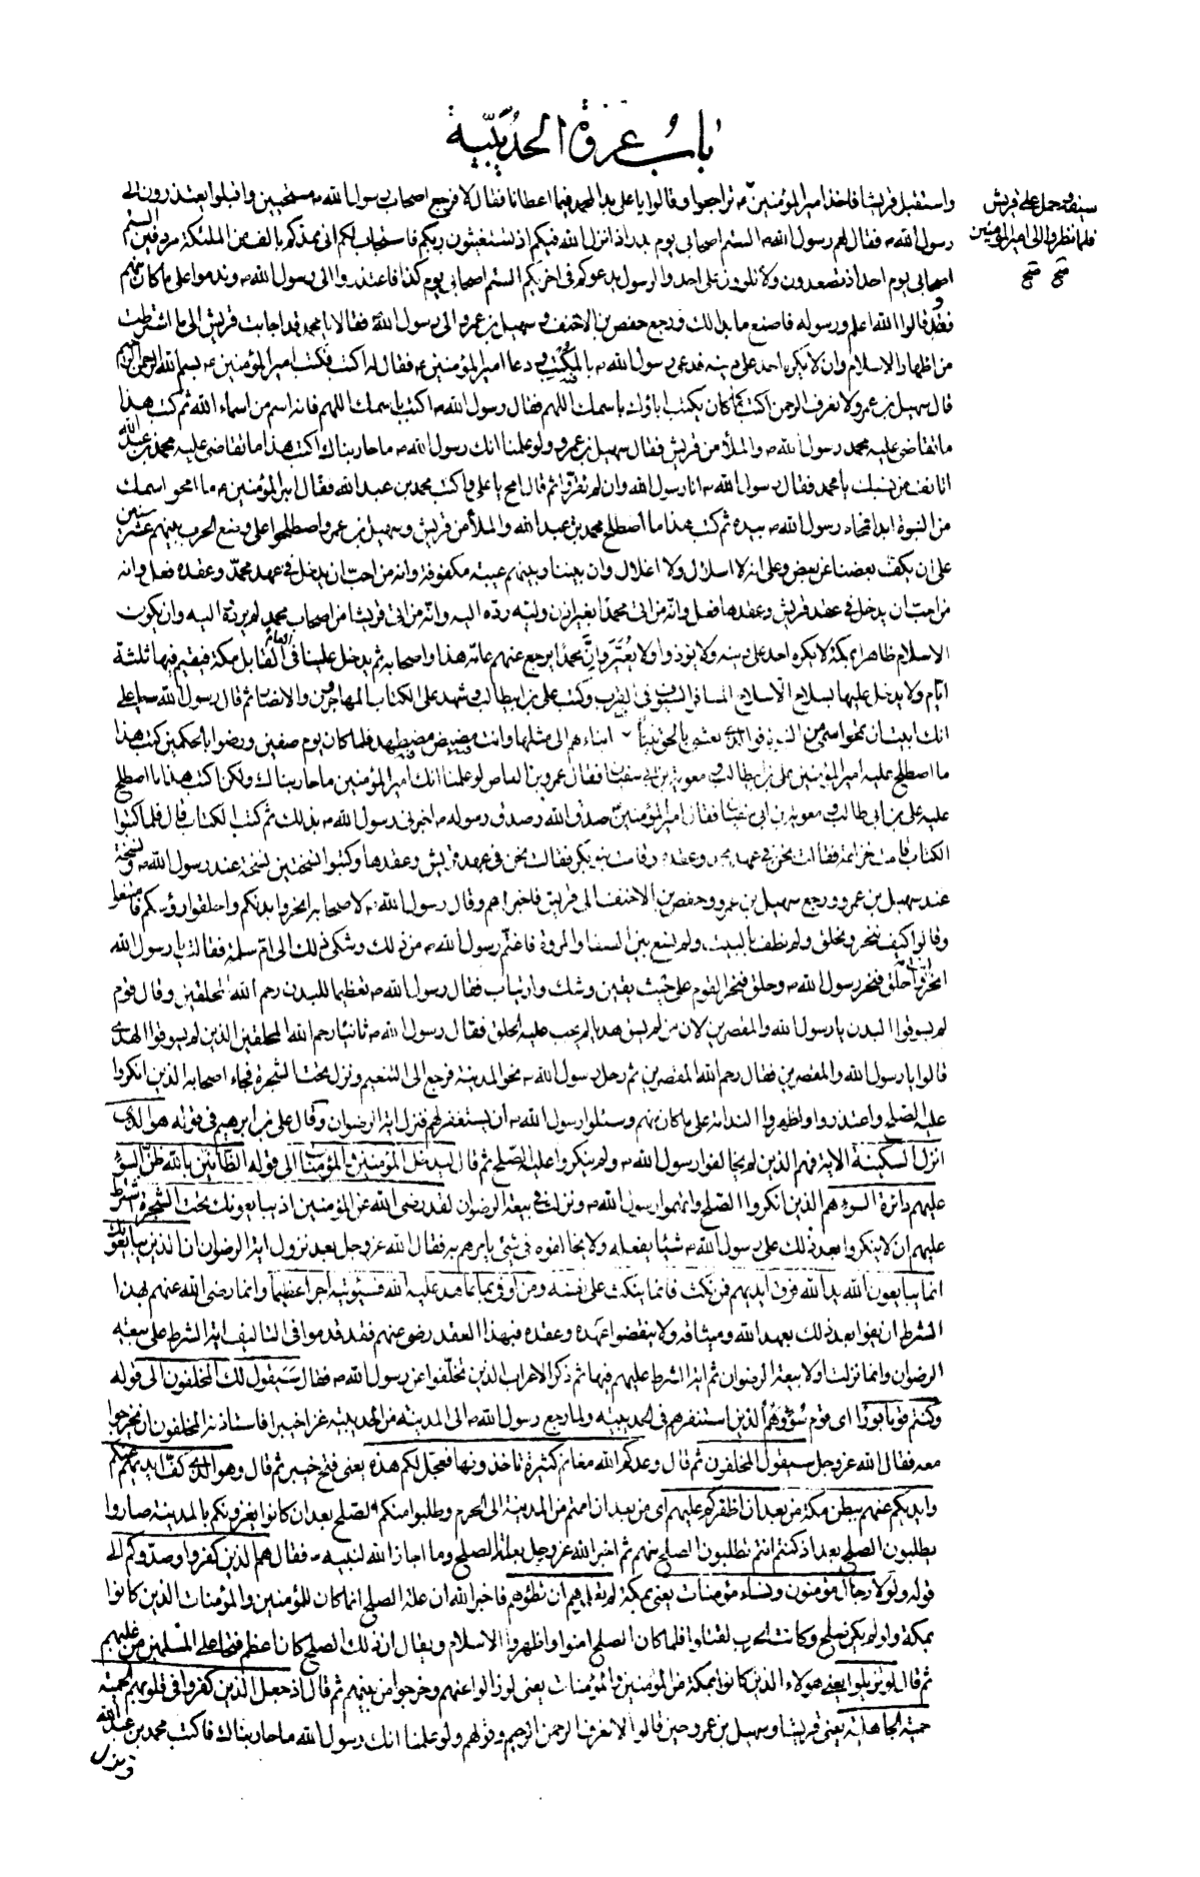 باب غزوة الحديبية
سيفه وحمل على قريش
فلما نظروا الى امير المؤمنين
صح صح
واستقبل قريشا فلما اخذ امير المؤمنين تراجعوا وقالوا يا علي بدا لمحمد فيما اعطانا فقال لا فرجع اصحاب رسول الله ص مستحيين واقبلوا يعتذرون الى
رسول الله ص فقال لهم رسول الله ص الستم اصحابي يوم بدر اذ انزل الله فيكم اذ تستغيثون ربكم فاستجاب لكم اني ممدكم بالف من الملئكة مردفين الستم
اصحابي يوم احد اذ تصعدون ولا تلوون على احد والرسول يدعوكم في اخريكم الستم اصحابي يوم كذا فاعتذروا الى رسول الله ص وندموا على ما كان منهم
وقالوا الله اعلم ورسوله فاصنع ما بدا لك ورجع حفص بن الاحنف وسهيل بن عمرو الى رسول الله فقالا يا محمد قد اجابت قريش الى ما اشترطت
من اظهار الاسلام وان لا يكره احد على دينه فدعى رسول الله ص بالمكتب ودعا امير المؤمنين ع فقال له اكتب فكتب امير المؤمنين ع بسم الله الرحمن الرحيم
قال سهيل بن عمرو لا نعرف الرحمن اكتب كما كان يكتب اباؤك باسمك اللهم فقال رسول الله ص اكتب باسمك اللهم فانه اسم من اسماء الله ثم كتب هذا
ما تقاضى عليه محمد رسول الله ص والملأ من قريش فقال سهيل بن عمرو ولو علمنا انك رسول الله ص ما حاربناك اكتب هذا ما تقاضى عليه محمد بن عبد الله
اتانف من نسبك يا محمد فقال رسول الله ص انا رسول الله وان لم تقروا ثم قال امح يا علي واكتب محمد بن عبد الله فقال امير المؤمنين ع ما امحو اسمك
من النبوة ابدا فمحاه رسول الله ص بيده ثم كتب هذا ما اصطلح محمد بن عبد الله والملأ من قريش وسهيل بن عمرو اصطلحوا على وضع الحرب بينهم عشر سنين
على ان يكف بعضنا عن بعض وعلى انه لا اسلال ولا اغلال وان بيننا وبينهم عيبة مكفوفة وانه من احب ان يدخل في عهد محمد وعقده فعل وانه
من احب ان يدخل في عقد قريش وعقدها فعل وانه من اتى محمدا بغير اذن وليه رده اليه وانه من اتى قريشا من اصحاب محمد لم يرده اليه وان يكون
الاسلام ظاهرا بمكة لا يكره احد على دينه ولا يؤذوا ولا يعير وان محمدا يرجع عنهم عامه هذا واصحابه ثم يدخل علينا في العام القابل مكة فيقيم فيها ثلثة
ايام ولا يدخل عليها بسلاح الا سلاح المسافر السيوف في القرب وكتب علي بن ابي طالب وشهد على الكتاب المهاجرون والانصار ثم قال رسول الله ص يا علي
انك ابيت ان تمحو اسمي من النبوة فوالذي بعثني بالحق نبيا ابناءهم الى مثلها وانت مضيض مضطهد فلما كان يوم صفين ورضوا بالحكمين كتب هذا
ما اصطلح عليه امير المؤمنين علي بن ابي طالب ومعوية بن ابي سفيان فقال عمرو بن العاص لو علمنا انك امير المؤمنين ما حاربناك ولكن اكتب هذا ما اصطلح
عليه علي بن ابي طالب ومعوية بن ابي سفيان فقال امير المؤمنين صدق الله وصدق رسوله ص اخبرني رسول الله ص بذلك ثم كتب الكتاب قال فلما كتبوا
الكتاب قامت خزاعة فقالت نحن في عهد محمد وعقده وقامت بنو بكر فقالت نحن في عهد قريش وعقدها وكتبوا نسختين نسخة عند رسول الله ص ونسخة
عند سهيل بن عمرو ورجع سهيل بن عمرو وحفص بن الاحنف الى قريش فاخبراهم وقال رسول الله ص لاصحابه انحروا بدنكم واحلقوا رؤسكم فامتنعوا
وقالوا كيف ننحر ونحلق ولم نطف بالبيت ولم نسع بين الصفا والمروة فاغتم رسول الله ص من ذلك وشكى ذلك الى ام سلمة فقالت يا رسول الله
انحر انت واحلق فنحر رسول الله ص وحلق فنحر القوم على خبث يقين وشك وارتياب فقال رسول الله ص تعظيما للبدن رحم الله المحلقين وقال قوم
لم يسوقوا البدن يا رسول الله والمقصرين لان من لم يسق هديا لم يجب عليه الحلق فقال رسول الله ص ثانيا رحم الله المحلقين الذين لم يسوقوا الهدى
قالوا يا رسول الله والمقصرين فقال رحم الله المقصرين ثم رحل رسول الله ص نحو المدينة فرجع الى التنعيم ونزل تحت الشجرة فجاء اصحابه الذين انكروا
عليه الصلح واعتذروا واظهروا الندامة على ما كان منهم وسئلوا رسول الله ص ان يستغفر لهم فنزل اية الرضوان وقال علي بن ابرهيم في قوله هو الذي
انزل السكينة الاية فهم الذين لم يخالفوا رسول الله ص ولم ينكروا عليه الصلح ثم قال ليدخل المؤمنين والمؤمنات الى قوله الظانين بالله ظن السوء
عليهم دائرة السوء هم الذين انكروا الصلح واتهموا رسول الله ص ونزلت في بيعة الرضوان لقد رضى الله عن المؤمنين اذ يبايعونك تحت الشجرة اشترط
عليهم ان لا ينكروا بعد ذلك على رسول الله ص شيئا يفعله ولا يخالفوه في شئ يامرهم به فقال الله عز وجل بعد نزول اية الرضوان ان الذين يبايعونك
انما يبايعون الله يد الله فوق ايديهم فمن نكث فانما ينكث على نفسه ومن اوفى بما عاهد عليه الله فسيؤتيه اجرا عظيما وانما رضى الله عنهم بهذا
الشرط ان يفوا بعد ذلك بعهد الله وميثاقه ولا ينقضوا عهده وعقده فبهذا العقد رضى عنهم فقد قدموا في التاليف اية الشرط على بيعة
الرضوان وانما نزلت اولا بيعة الرضوان ثم اية الشرط عليهم فيها ثم ذكر الاعراب الذين تخلفوا عن رسول الله ص فقال سيقول لك المخلفون الى قوله
وكنتم قوما بورا اى قوم سوء وهم الذين استنفرهم في الحديبية ولما رجع رسول الله ص الى المدينة من الحديبية غزا خيبرا فاستاذنه المخلفون ان يخرجوا
معه فقال الله عز وجل سيقول المخلفون ثم قال وعدكم الله مغانم كثيرة تاخذونها فعجل لكم هذه يعنى فتح خيبر ثم قال وهو الذي كف ايديهم عنكم
وايديكم عنهم ببطن مكة من بعد ان اظفركم عليهم اى من بعد ان اممتم من المدينة الى الحرم وطلبوا منكم الصلح بعد ان كانوا يغزونكم بالمدينة صاروا
يطلبون الصلح بعد اذ كنتم انتم تطلبون الصلح منهم ثم اخبر الله عز وجل بعلة الصلح وما اجاز الله لنبيه ص فقال هم الذين كفروا وصدوكم الى
قوله ولولا رجال مؤمنون ونساء مؤمنات يعنى بمكة لم تعلموهم ان تطؤهم فاخبر الله ان علة الصلح انما كان للمؤمنين والمؤمنات الذين كانوا
بمكة ولو لم يكن صلح وكانت الحرب لقتلوا فلما كان الصلح امنوا واظهروا الاسلام ويقال ان ذلك الصلح كان اعظم فتحا على المسلمين من غلبهم
ثم قال لو تزيلوا يعنى هؤلاء الذين كانوا بمكة من المؤمنين والمؤمنات يعنى لو زالوا عنهم وخرجوا من بينهم ثم قال اذ جعل الذين كفروا في قلوبهم الحمية
حمية الجاهلية يعنى قريشا وسهيل بن عمرو حين قالوا لا نعرف الرحمن الرحيم وقولهم ولو علمنا انك رسول الله ما حاربناك فاكتب محمد بن عبد الله
ونزل